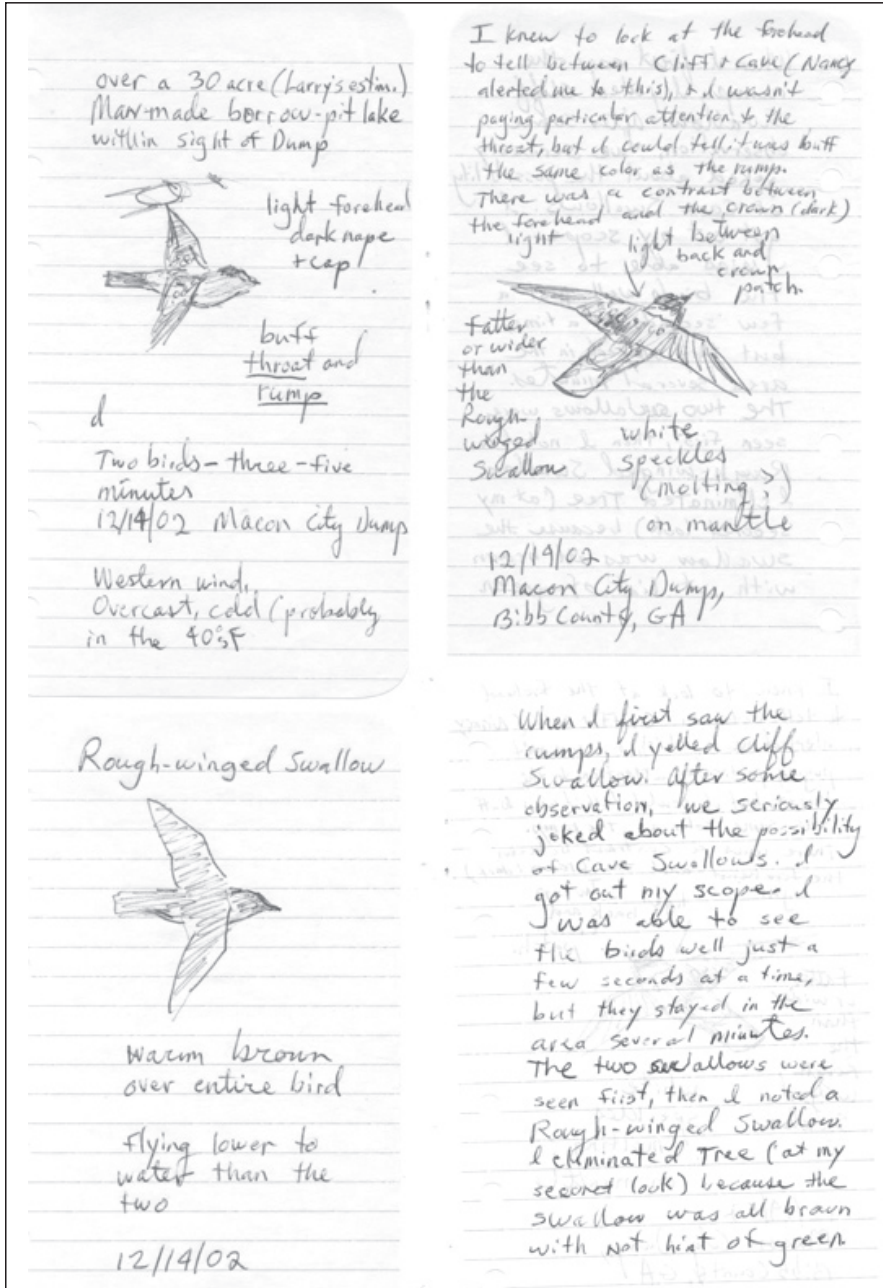 over a 30 acre (Larry's estim.)
Man-made borrow-pit lake
within sight of Dump
light forehead
dark nape
+ cap
buff
throat and
rump
d
Two birds - three - five
minutes
12/14/02 Macon City Dump
Western wind,
Overcast, cold (probably
in the 40's F
I knew to look at the forehead
to tell between Cliff + Cave (Nancy
alerted me to this), + I wasn't
paying particular attention to the
throat, but I could tell it was buff
the same color as the rump.
There was a contrast between
the forehead and the crown (dark)
light
light between
back and
crown
patch.
Fatter
or wider
than
the
Rough-
winged
Swallow
white
speckles
(molting?)
on mantle
12/14/02
Macon City Dump,
Bibb County, GA
Rough-winged Swallow
warm brown
over entire bird
flying lower to
water than the
two
12/14/02
When I first saw the
rumps, I yelled Cliff
Swallow. After some
observation, we seriously
joked about the possibility
of Cave Swallows. I
got out my scope. I
was able to see
the birds well just a
few seconds at a time,
but they stayed in the
area several minutes.
The two swallows were
seen first, then I noted a
Rough-winged Swallow.
I eliminated Tree (at my
second look) because the
swallow was all brown
with not hint of green